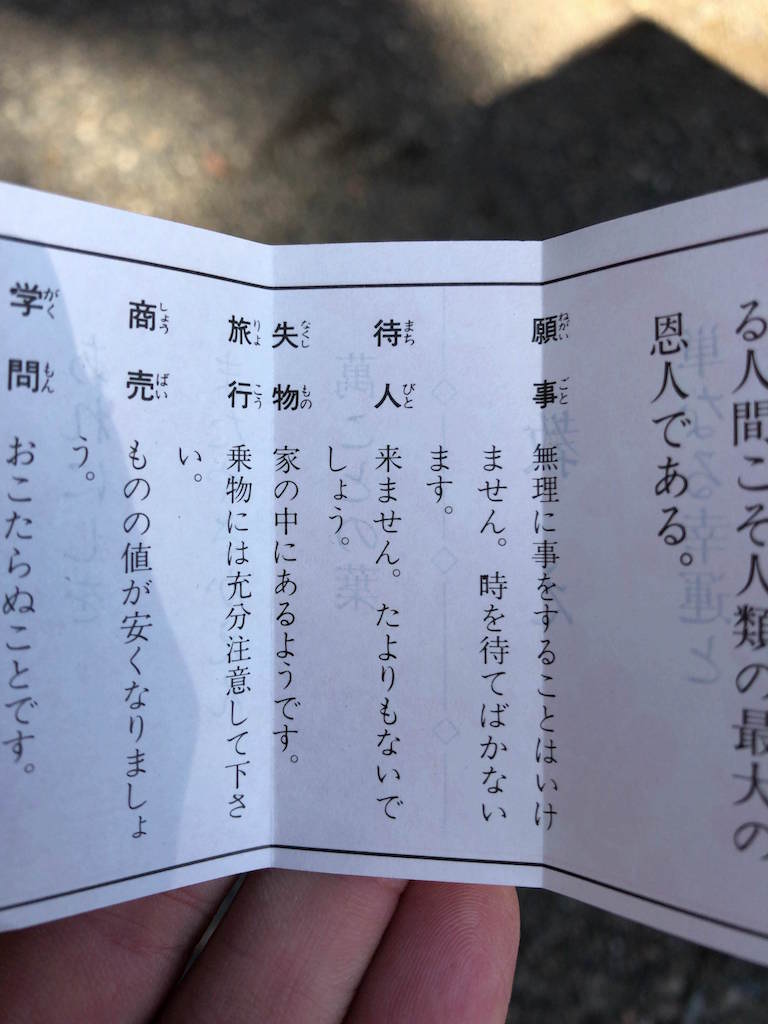 る人間こそ人類の最大の
恩人である。
願事 無理に事をすることはいけ
ません。時を待てばかない
ます。
待人 来ません。たよりもないで
しょう。
失物 家の中にあるようです。
旅行 乗物には充分注意して下さ
い。
商売 ものの値が安くなりましょ
う。
学問 おこたらぬことです。